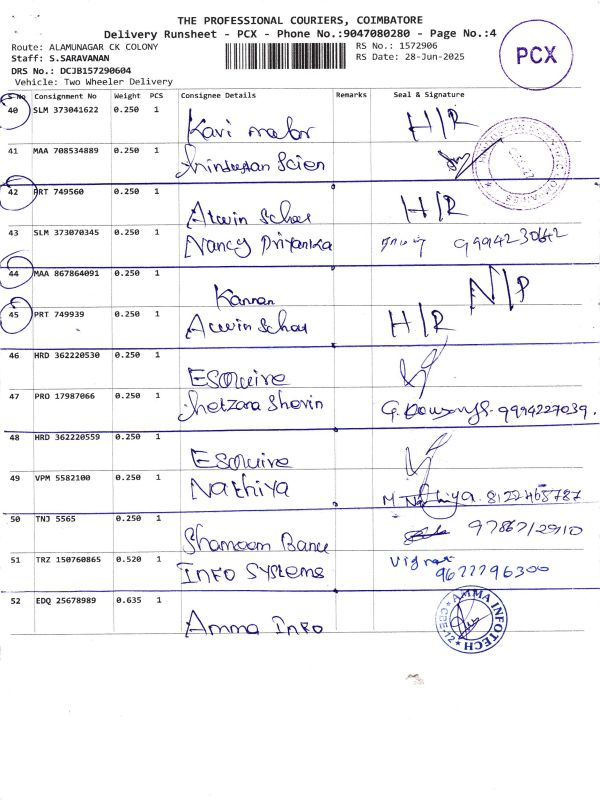 THE PROFESSIONAL COURIERS, COIMBATORE
Delivery Runsheet - PCX - Phone No.:9047080280 - Page No.:4
Route: ALAMUNAGAR CK COLONY
RS No.: 1572906
Staff: S.SARAVANAN
RS Date: 28-Jun-2025
DRS No.: DCJB157290604
Vehicle: Two Wheeler Delivery
PCX
S No Consignment No Weight PCS Consignee Details Remarks Seal & Signature
40 SLM 373041622 0.250 1 Kavi H/R
41 MAA 708534889 0.250 1 Hindustan Scien
42 PRT 749560 0.250 1 Alwin Schar H/R
43 SLM 373070345 0.250 1 Nancy Priyanka 9994230642
44 MAA 867864091 0.250 1 Kannan N/P
45 PRT 749939 0.250 1 Alwin Schar H/R
46 HRD 362220530 0.250 1 ESquire
47 PRO 17987066 0.250 1 Shetzara Shevin G. 9994227039.
48 HRD 362220559 0.250 1 ESquire
49 VPM 5582100 0.250 1 Nathiya M Nathiya. 8122465787
50 TNJ 5565 0.250 1 Shamoom Banu 9786712910
51 TRZ 150760865 0.520 1 INFO SYSTEMS
9677796300
52 EDQ 25678989 0.635 1 Amma INFO
AMMA INFOTECH
CBE-12